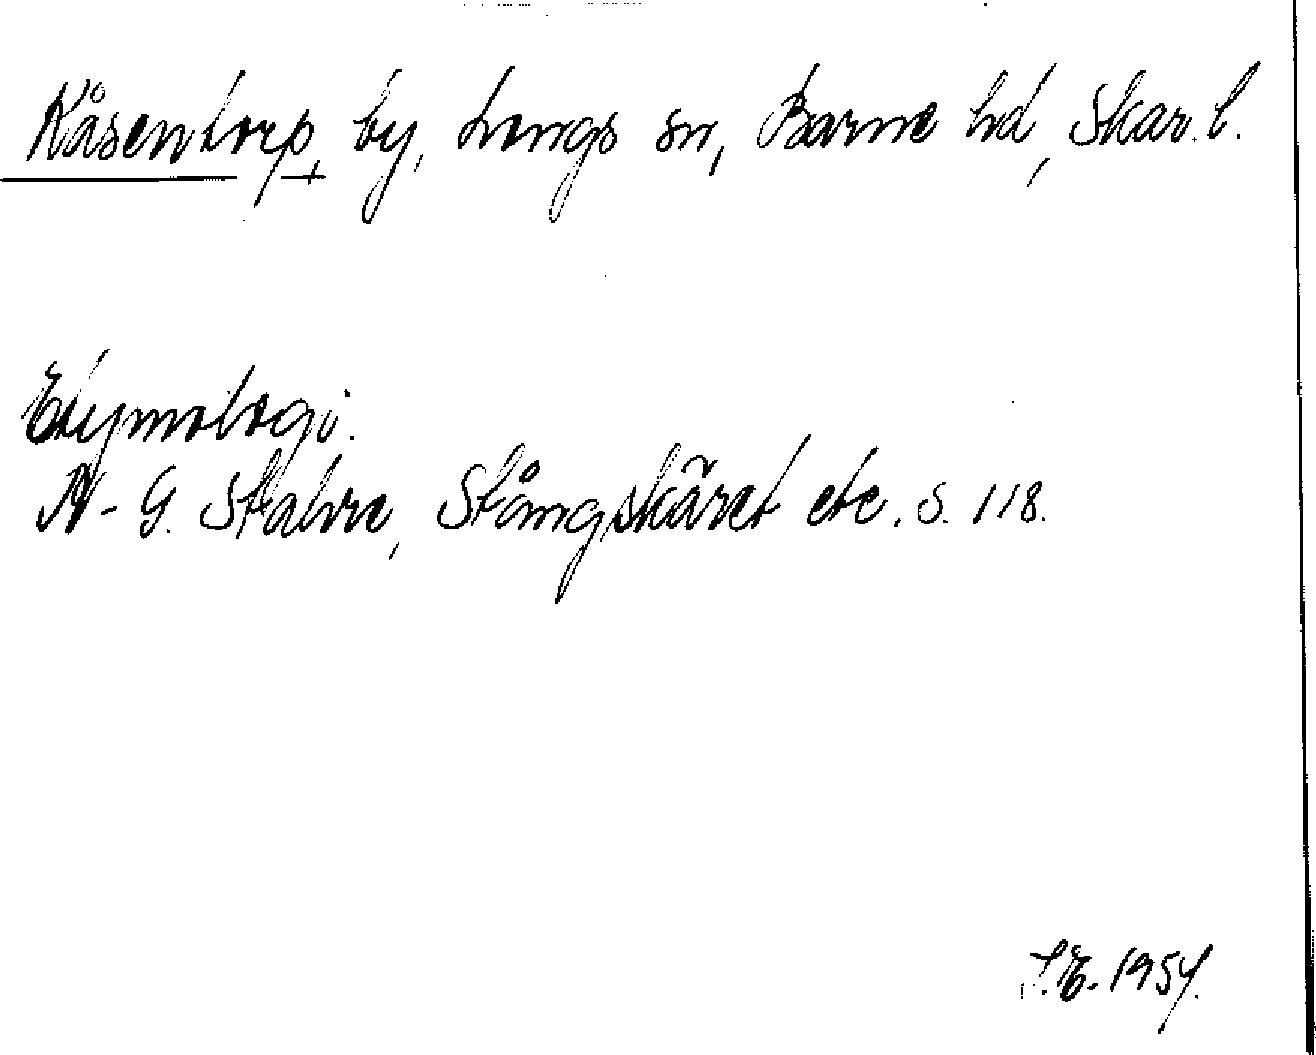 Kåsentorp, by, Longs sn, Barne hd, Skar. l.
Etymologi.
N-G. Stahre, Stångskäret etc. s. 118.
1954.